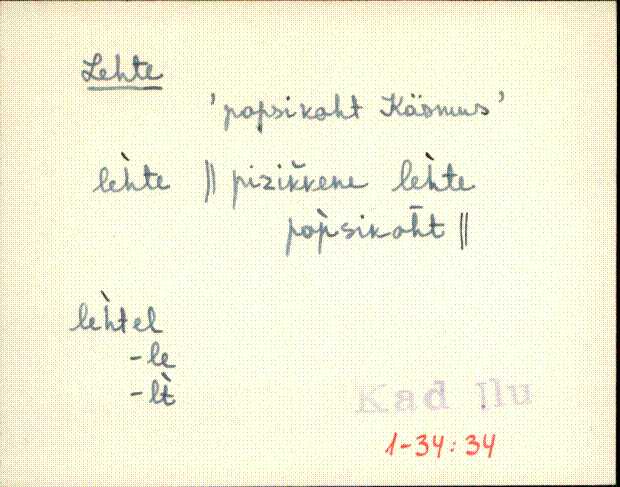 Lehte
'popsikoht Käsmus'
leh̀te || pizik̆kene leh̀te
pop̀sikoh̄t ||
leh̀tel
-le
-lt̀
Kad Ilu
1-34:34